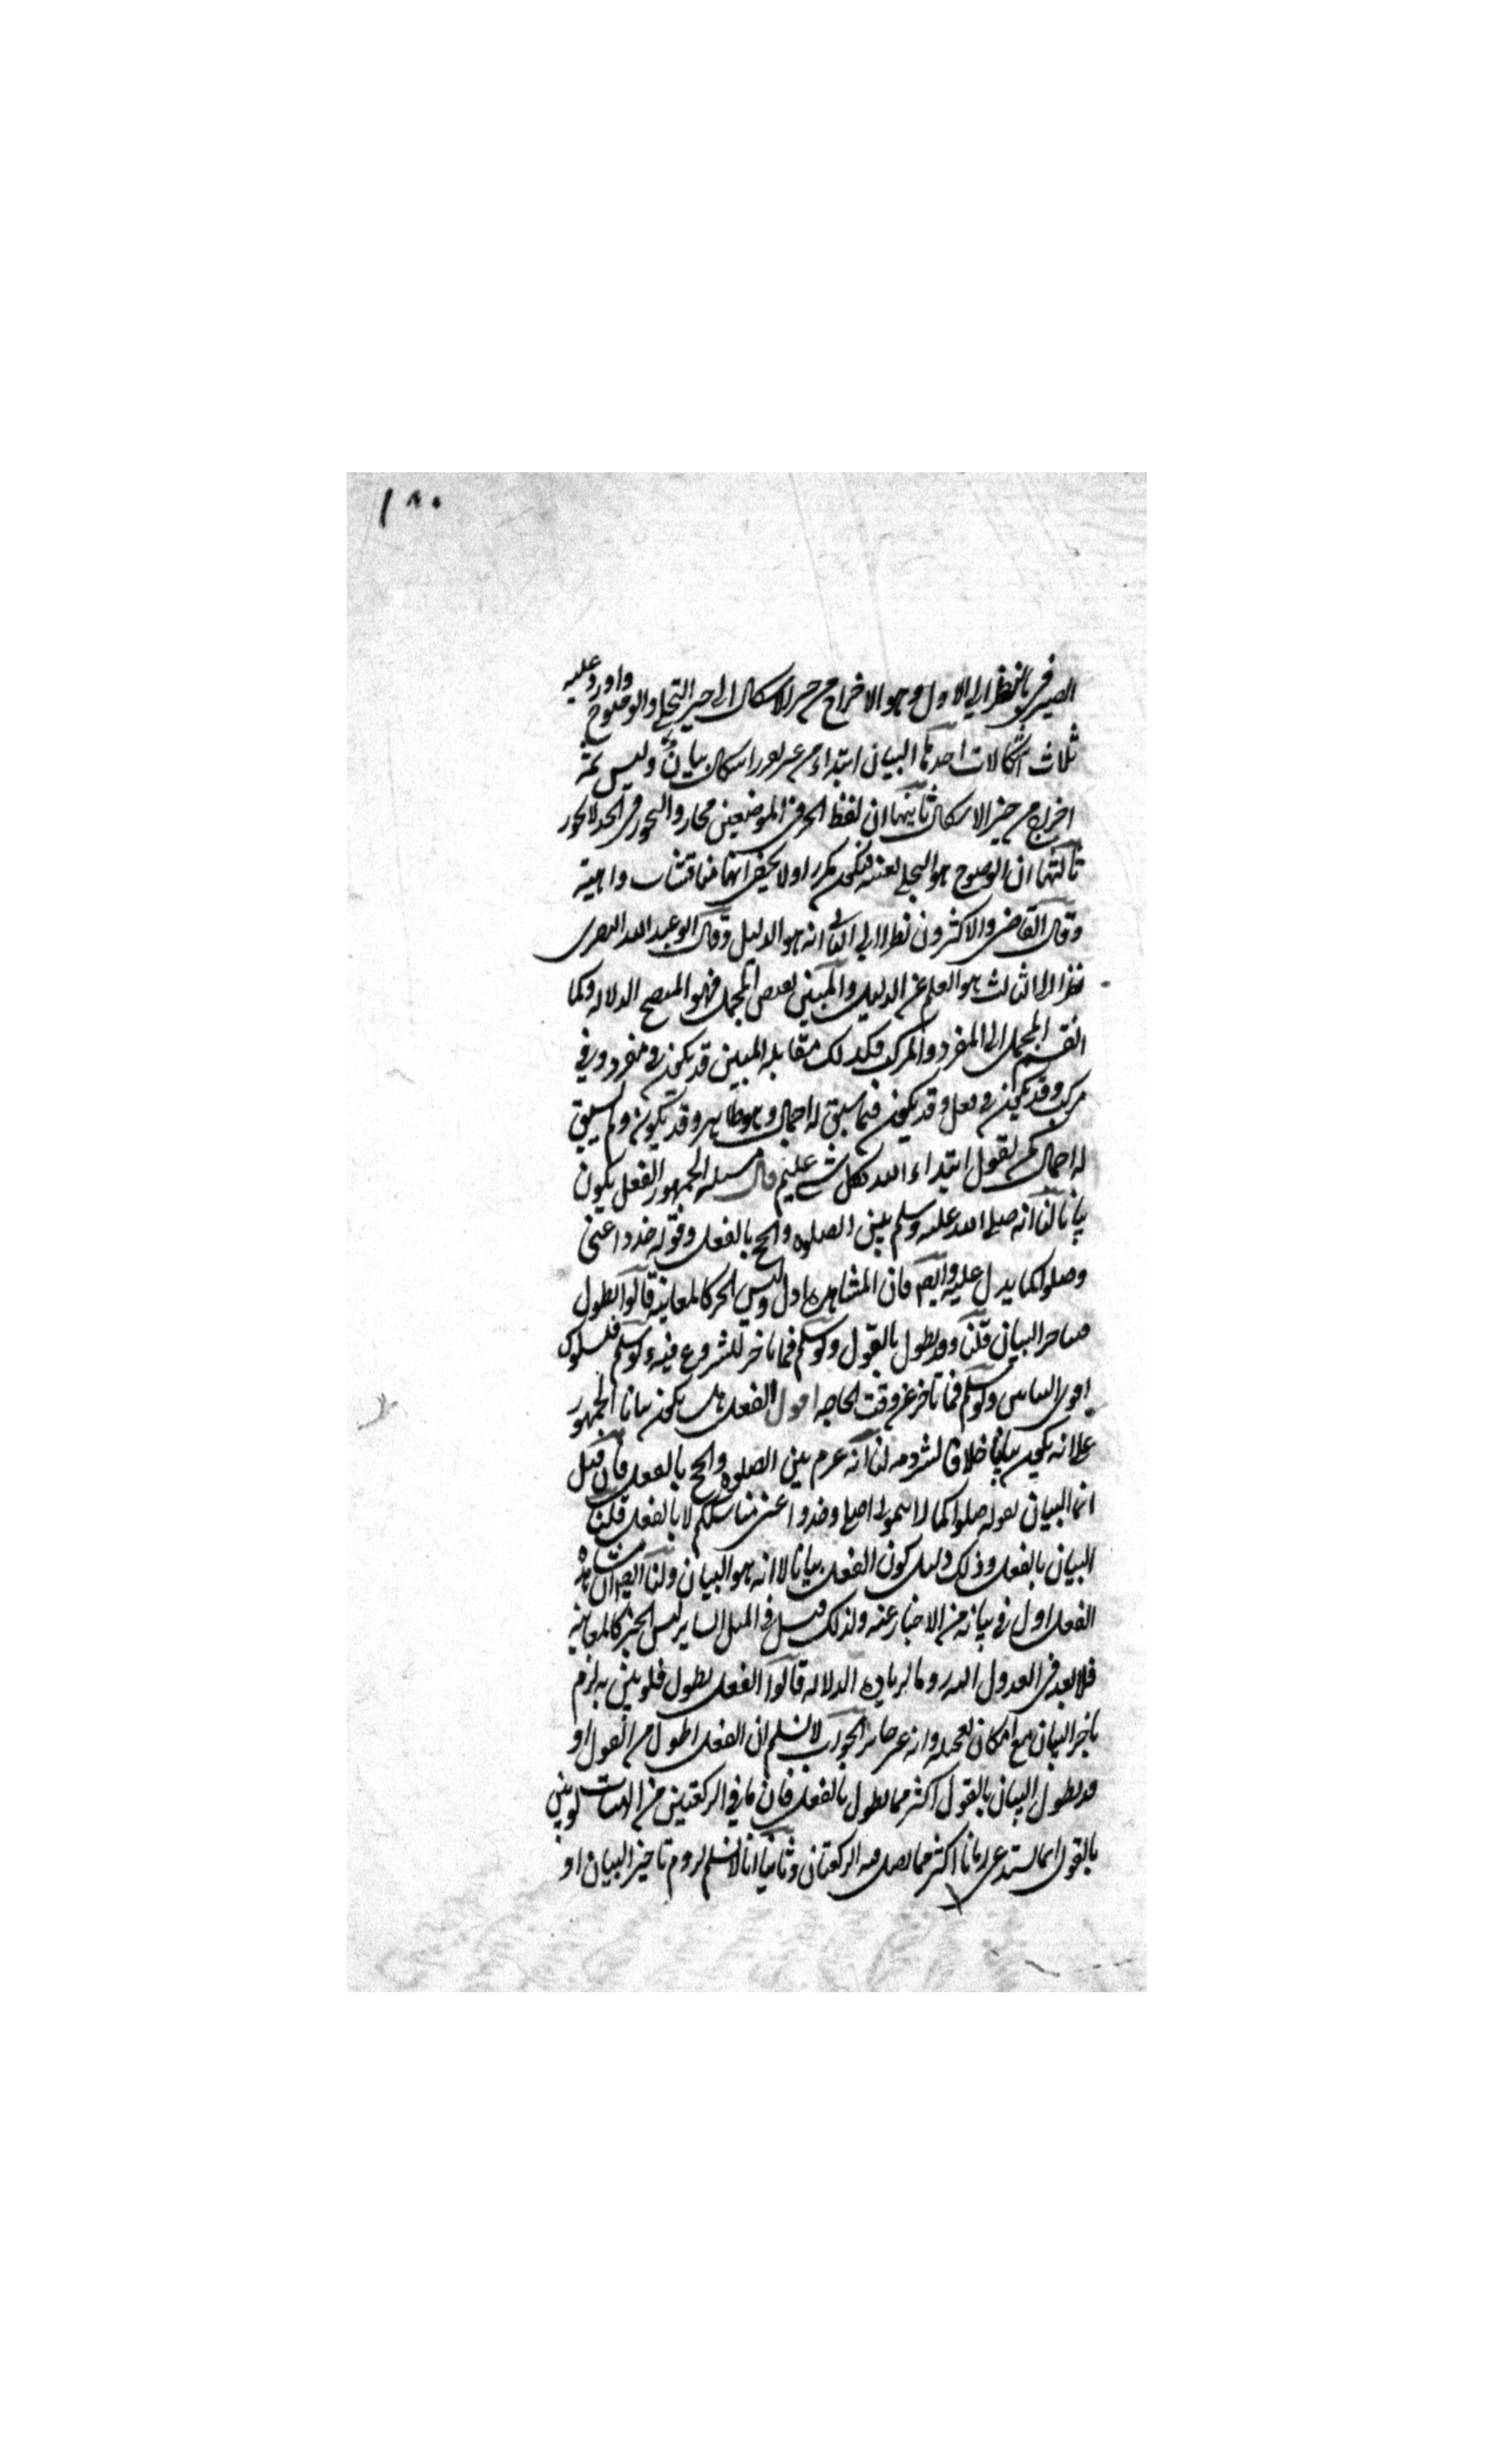 ١٨٠
الصيرفي بالنظر الى الاول وهو الاخراج من حيز الاشكال الى حيز التجلي والوضوح واورد عليه
ثلاث اشكالات احدها البيان ابتداء من غير تقرر اشكال بيان وليس ثمة
اخراج من حيز الاشكال ثانيها ان لفظ الحيز في الموضعين مجاز والتجوز في الحد لا يجوز
ثالثها ان الوضوح هو التجلي بعينه فيكون مكررا ولا يخفى انها مناقشات واهية
وقال القاضي والاكثرون نظرا الى الثاني انه هو الدليل وقال ابو عبد الله البصري
نظرا الى الثالث هو العلم عن الدليل والمبين نقيض المجمل فهو المتضح الدلالة وكما
انقسم المجمل الى المفرد والمركب فكذلك مقابله المبين قد يكون في مفرد وفي
مركب وقد يكون في فعل وقد يكون فيما سبق له اجمال وهو ظاهر وقد يكون ولم يسبق
له اجمال كمن يقول ابتداء الله بكل شيء عليم قال مسئلة الجمهور الفعل يكون
بيانا لنا انه صلى الله عليه وسلم بين الصلوة والحج بالفعل وقوله خذوا عني
وصلوا كما يدل عليه وايضا فان المشاهدة ادل وليس الخبر كالمعاينة قالوا يطول
فيتاخر البيان قلنا وقد يطول بالقول ولو سلم فما تاخر للشروع فيه ولو سلم فلسلوك
اقوى البيانين ولو سلم فما تاخر عن وقت الحاجة اقول الفعل هل يكون بيانا الجمهور
على انه يكون بيانا خلافا لشرذمة لنا انه عرم بين الصلوة والحج بالفعل فان قيل
انما البيان بقوله صلوا كما رايتموني اصلي وخذوا عني مناسككم لا بالفعل قلنا
البيان بالفعل وذلك دليل كون الفعل بيانا لا انه هو البيان ولنا ايضا ان مشاهدة
الفعل ادل في بيانه من الاخبار عنه ولذلك قيل في المثل الساير ليس الخبر كالمعاينة
فلا بعد في العدول اليه روما لزيادة الدلالة قالوا الفعل يطول فلو بين به لزم
تاخير البيان مع امكان تعجيله وانه غير جائز الجواب لا نسلم ان الفعل اطول من القول او
قد يطول البيان بالقول اكثر مما يطول بالفعل فان ما في الركعتين من الهيات لو بين
بالقول انما استدعى زمانا اكثر مما يصلى فيه الركعتان وثانيا انا لا نسلم لزوم تاخير البيان او